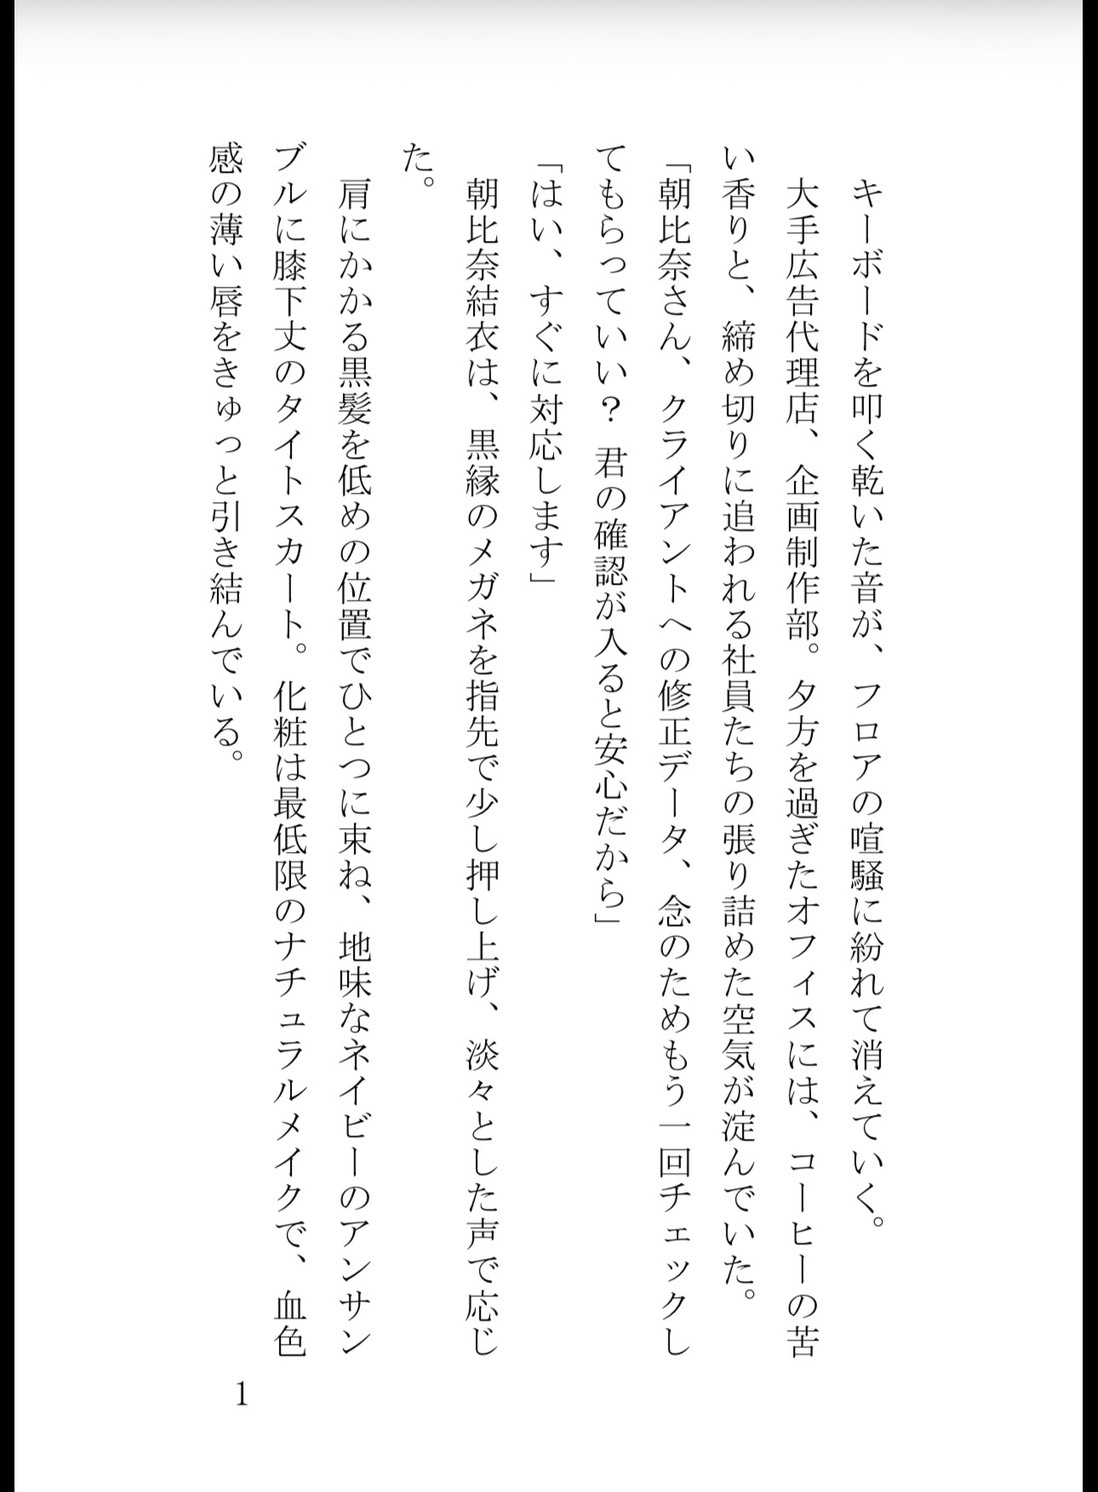 キーボードを叩く乾いた音が、フロアの喧騒に紛れて消えていく。
　大手広告代理店、企画制作部。夕方を過ぎたオフィスには、コーヒーの苦
い香りと、締め切りに追われる社員たちの張り詰めた空気が淀んでいた。
「朝比奈さん、クライアントへの修正データ、念のためもう一回チェックし
てもらっていい？ 君の確認が入ると安心だから」
「はい、すぐに対応します」
　朝比奈結衣は、黒縁のメガネを指先で少し押し上げ、淡々とした声で応じ
た。
　肩にかかる黒髪を低めの位置でひとつに束ね、地味なネイビーのアンサン
ブルに膝下丈のタイトスカート。化粧は最低限のナチュラルメイクで、血色
感の薄い唇をきゅっと引き結んでいる。
1